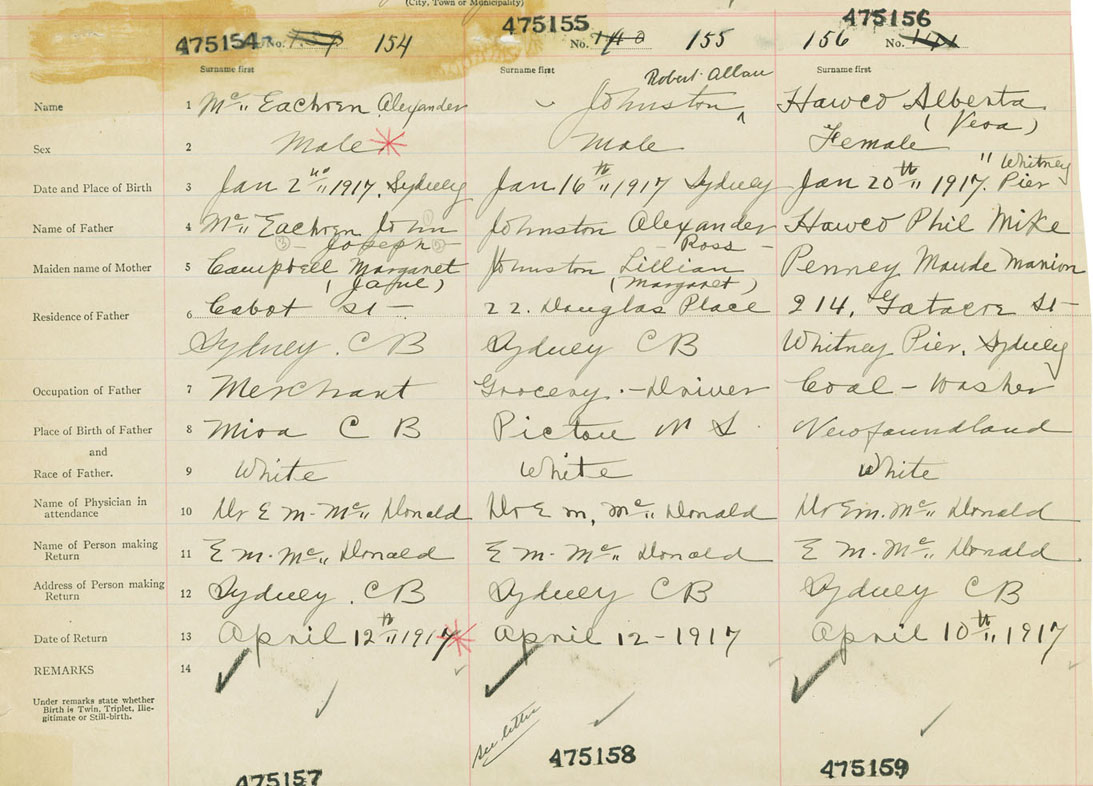 (City, Town or Municipality)
475154 No. 154 475155 No. 155 475156 156 No.
Surname first Surname first Surname first
Robert Allan
Name 1 Mc" Eachren Alexander Johnston ^ Hawco Alberta
(Vera)
Sex 2 Male Male Female
" Whitney
Date and Place of Birth 3 Jan 2nd" 1917. Sydney Jan 16th" 1917 Sydney Jan 20th" 1917. Pier
Name of Father 4 Mc" Eachren John Johnston Alexander Hawco Phil Mike
Joseph - - Ross -
Maiden name of Mother 5 Campbell Margaret Johnston Lillian Penney Maude Manion
(Jane) (Margaret)
Residence of Father 6 Cabot St - 22. Douglas Place 214, Gatacre St -
Sydney. C B Sydney C B Whitney Pier, Sydney
Occupation of Father 7 Merchant Grocery - Driver Coal - Washer
Place of Birth of Father 8 Mira C B Pictou N S Newfoundland
and
Race of Father. 9 White White White
Name of Physician in attendance 10 Dr E M- Mc" Donald Dr E M, Mc" Donald Dr E m. Mc" Donald
Name of Person making Return 11 E M- Mc" Donald E M- Mc" Donald E M. Mc" Donald
Address of Person making Return 12 Sydney. C B Sydney C B Sydney C B
Date of Return 13 April 12th" 1917 April 12 - 1917 April 10th" 1917
REMARKS 14
Under remarks state whether
Birth is Twin, Triplet, Ille-
gitimate or Still-birth.
see letter
475157 475158 475159